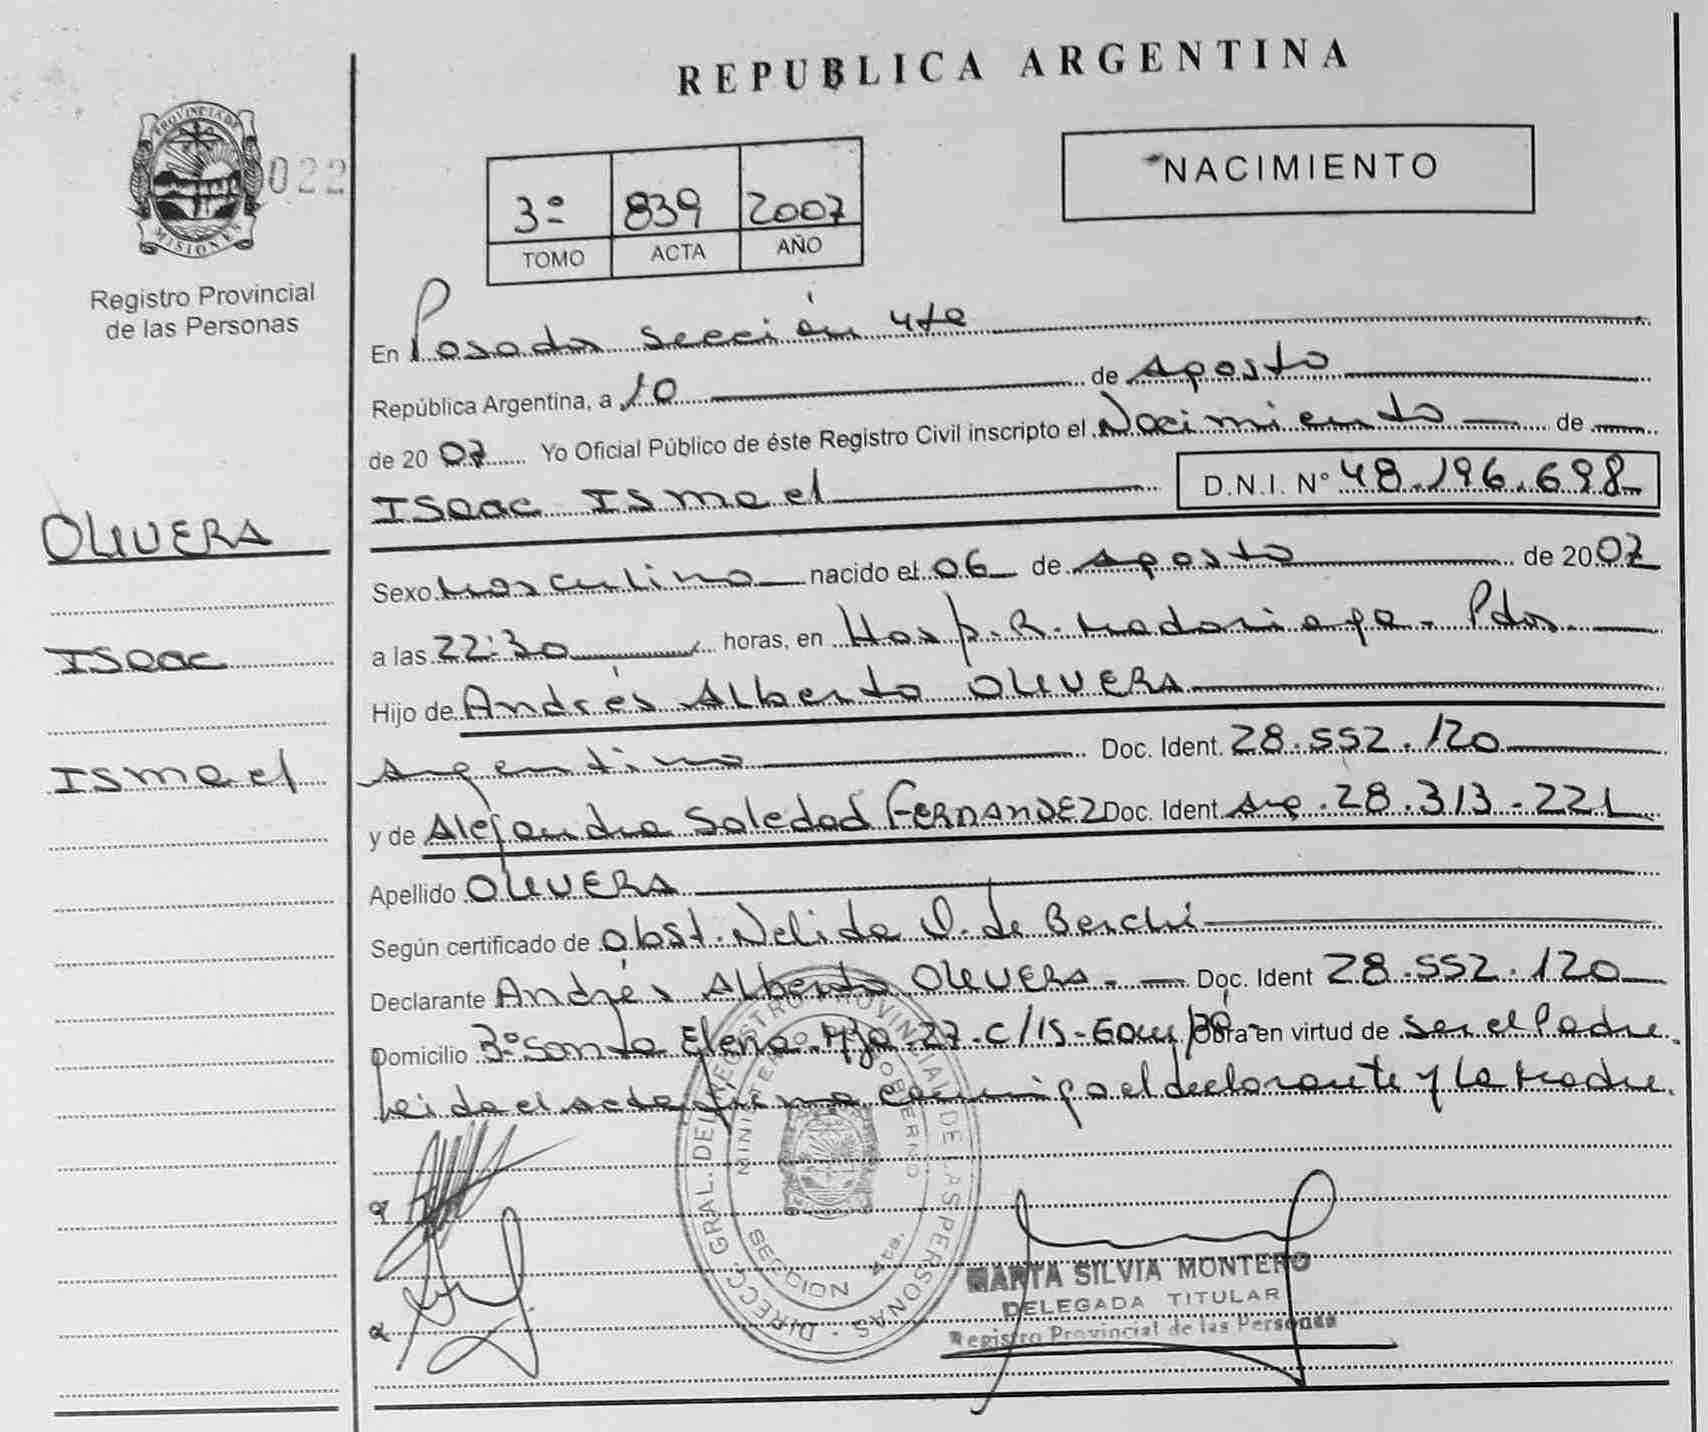 REPUBLICA ARGENTINA
PROVINCIA DE
MISIONES
022
Registro Provincial
de las Personas
3º 839 2007
TOMO ACTA AÑO
NACIMIENTO
En Posadas Sección 4ta
República Argentina, a 10 de Agosto
de 2007 Yo Oficial Público de éste Registro Civil inscripto el Nacimiento de
Isaac Ismael D.N.I. Nº 48.196.698
OLIVERA
Isaac
Ismael
Sexo Masculino nacido el 06 de Agosto de 2007
a las 22:30 horas, en Hosp. R. Madariaga - Pdas.
Hijo de Andrés Alberto OLIVERA
Argentino Doc. Ident. 28.552.120
y de Alejandra Soledad FERNANDEZ Doc. Ident Arg. 28.313.221
Apellido OLIVERA
Según certificado de obst. Nelida D. de Berchi
Declarante Andrés Alberto OLIVERA. Doc. Ident 28.552.120
Domicilio 3º Santa Elena Mza 27 - C/15 - Obra en virtud de ser el Padre.
Leida el acta firma conmigo el declarante y la Madre.
DIRECC. GRAL. DEL REGISTRO PROVINCIAL DE LAS PERSONAS
MINISTERIO GOBIERNO
SECCION 4ta.
MARTA SILVIA MONTERO
DELEGADA TITULAR
Registro Provincial de las Personas